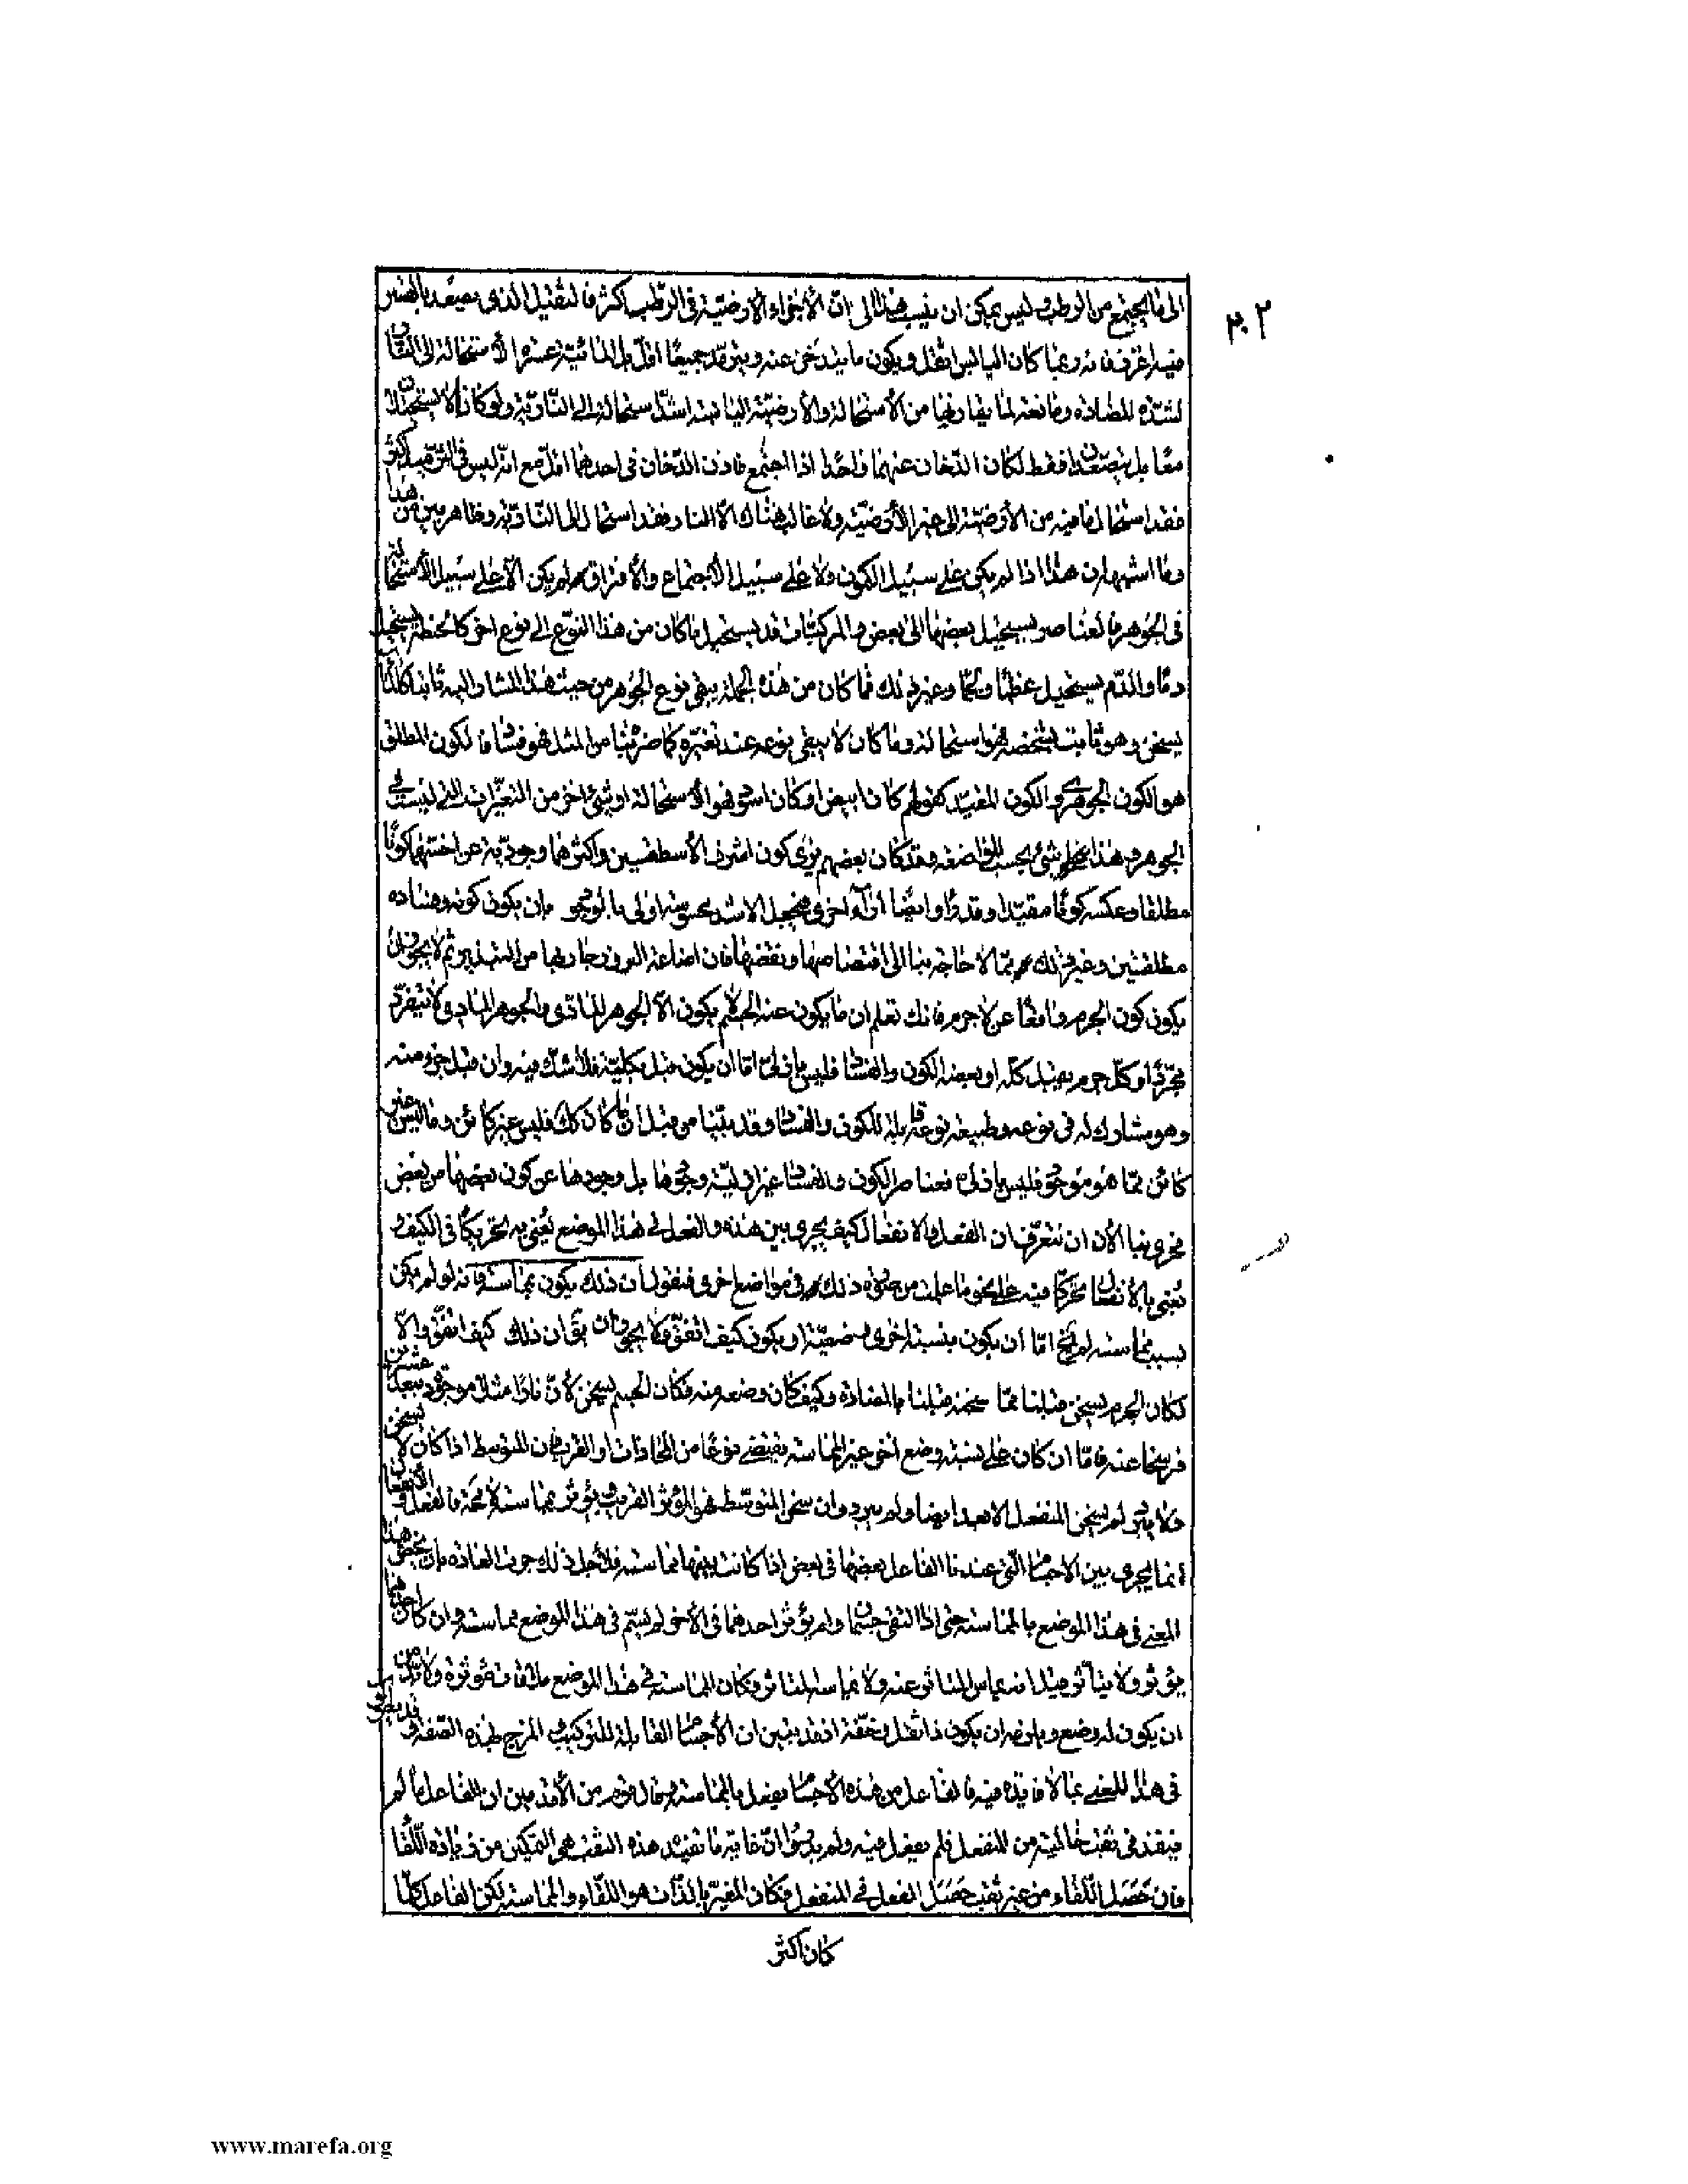 ٣٠٢
الى ما يجتمع من الرطب وليس يمكن ان ينسب هذا الى ان الأجزاء الأرضية فى الرطب اكثر فالثقيل الذى يصعد بالقسر
فيه اغزر فانه ربما كان اليابس اثقل ويكون ما يتدخن عنه ويترمد جميعا اقل بل المائية عسرة الاستحالة الى الدخان
لشدة المضادة ومانعة لما يقارنها من الأستحالة والأرضية اليابسة اشد استحالة الى النارية ولو كانا لا يستحيلان
معا بل يتصعدان فقط لكان الدخان عنهما واحدا اذا اجتمع فاذن الدخان فى احدهما اقل مع انه ليس فى الترمد اكثر
فقد استحال ما فيه من الأرضية الى غير الأرضية ولا غالب هناك الا النار فقد استحال الى النارية وظاهر بين من هذا
وما اشبهه ان هذا اذا لم يكن على سبيل الكون ولا على سبيل الأجتماع والأفتراق لم يكن الا على سبيل الأستحالة
فى الجوهر فالعناصر يستحيل بعضها الى بعض والمركبات قد يستحيل ما كان من هذا النوع الى نوع اخر كالحنطة يستحيل
دما والدم يستحيل عظما ولحما وغير ذلك فما كان من هذه الجملة يبقى نوع الجوهر من حيث هذا المشار اليه ثابتا كالماء
يسخن وهو ثابت بشخصه فهو استحالة وما كان لا يبقى نوعه عند تغيره كما ضربنا من المثل فهو فساد فالكون المطلق
هو الكون الجوهرى والكون المقيد كقولهم كان ابيض او كان اسود فهو الأستحالة او شئ اخر من التغيرات التى ليست فى
الجوهر وهذا شئ بحسب المواضعة وقد كان بعضهم يرى كون اشرف الأسطقسين واكثرهما وجودية عن اخسهما كونا
مطلقا وعكسه كونا مقيدا وقد راوا ايضا اراء اخرى فجعل الاشد محسوسية اولى بالوجود بان يكون كونه وفساده
مطلقين وغير ذلك مما لا حاجة بنا الى اقتصاصها ونقضها فان اضاعة الوقت مجاريها من التبذير ثم لا يجوز ان
يكون كون الجرم واقعا عن لا جرم فانك تعلم ان ما يكون عنه الجسم يكون الا الجوهر المادى والجوهر المادى لا ينفرد
مجردا وكل جرم يقبل كله او بعضه الكون والفساد فليس بازلى اما ان يكون قبل بكليته فلا شك فيه وان قبل جزء منه
وهو مشارك له فى نوعه وطبيعة نوعه قابلة للكون والفساد وقد بينا من قبل ان ما كان كك فليس غير كائن وما ليس غير
كائن مما هو موجود فليس بازلى فعناصر الكون والفساد غير ازلية وجودها بل وجودها عن كون بعضها من بعض
فحرى بنا الأن ان نتعرف ان الفعل والانفعال كيف يجرى بين هذه والفعل فى هذا الموضع نعنى به تحريكا فى الكيف و
نعنى بالأنفعال تحركا فيه على نحو ما علمت من صورة ذلك فى مواضع اخرى فنقول ان ذلك يكون بمماسة فانه لو لم يكن
بسبب مماسة لم يخل اما ان يكون بنسبة اخرى وضعية او يكون كيف اتفق ولا يجوز ان يقال ان ذلك كيف اتفق والا
لكان الجرم يسخن قبلنا مما يسخنه قبلنا بالمضادة وكيف كان وضعه منه فكان الجسم يسخن لأن نارا مثلا موجودة ببعد عشرين
فرسخا عنه فاما ان كان على نسبة وضع اخر غير المماسة يقتضى نوعا من المحاذاة او القرب فان المتوسط اذا كان لا يسخن
ولا يبرد لم يسخن المنفعل الابعد ايضا ولم يبرد وان سخن المتوسط فهو المؤثر القريب ويؤثر بمماسة لا محة فالفعل والأنفعال
انما يجرى بين الاجسام التى عندنا الفاعل بعضها فى بعض اذا كانت بينها مماسة فلأجل ذلك جرت العادة بان يخص هذا
المعنى فى هذا الموضع بالمماسة حتى اذا التقى جسمان ولم يؤثر احدهما فى الأخر لم يسم فى هذا الموضع مماسة وان كان احدهما
يؤثر ولا يتأثر قيل انه يماس المتاثر عنه ولا يماسه المتاثر فكان المماسة فى هذا الموضع ملاقاة مؤثرة ولا بد من
ان يكون له وضع ويلزمه ان يكون ذا ثقل وخفة اذ قد تبين ان الأجسام القابلة للتركيب والمزج لهذه الصفة و قد بطول
فى هذا المعنى بما لا فايدة فيه فالفاعل من هذه الأجسام يفعل بالمماسة وقال قوم من الأقدمين ان الفاعل ما لم
ينفذ فى ثقب خالية من المنفعل فلم يفعل فيه ولم يدروا ان غاية ما تفيد هذه الثقب هى التمكين من زيادة اللقاء
فان حصل اللقاء من غير ثقب حصل الفعل فى المنفعل فكان المغير بالذات هو اللقاء والمماسة لكن الفاعل كلما
كان اكثر
www.marefa.org